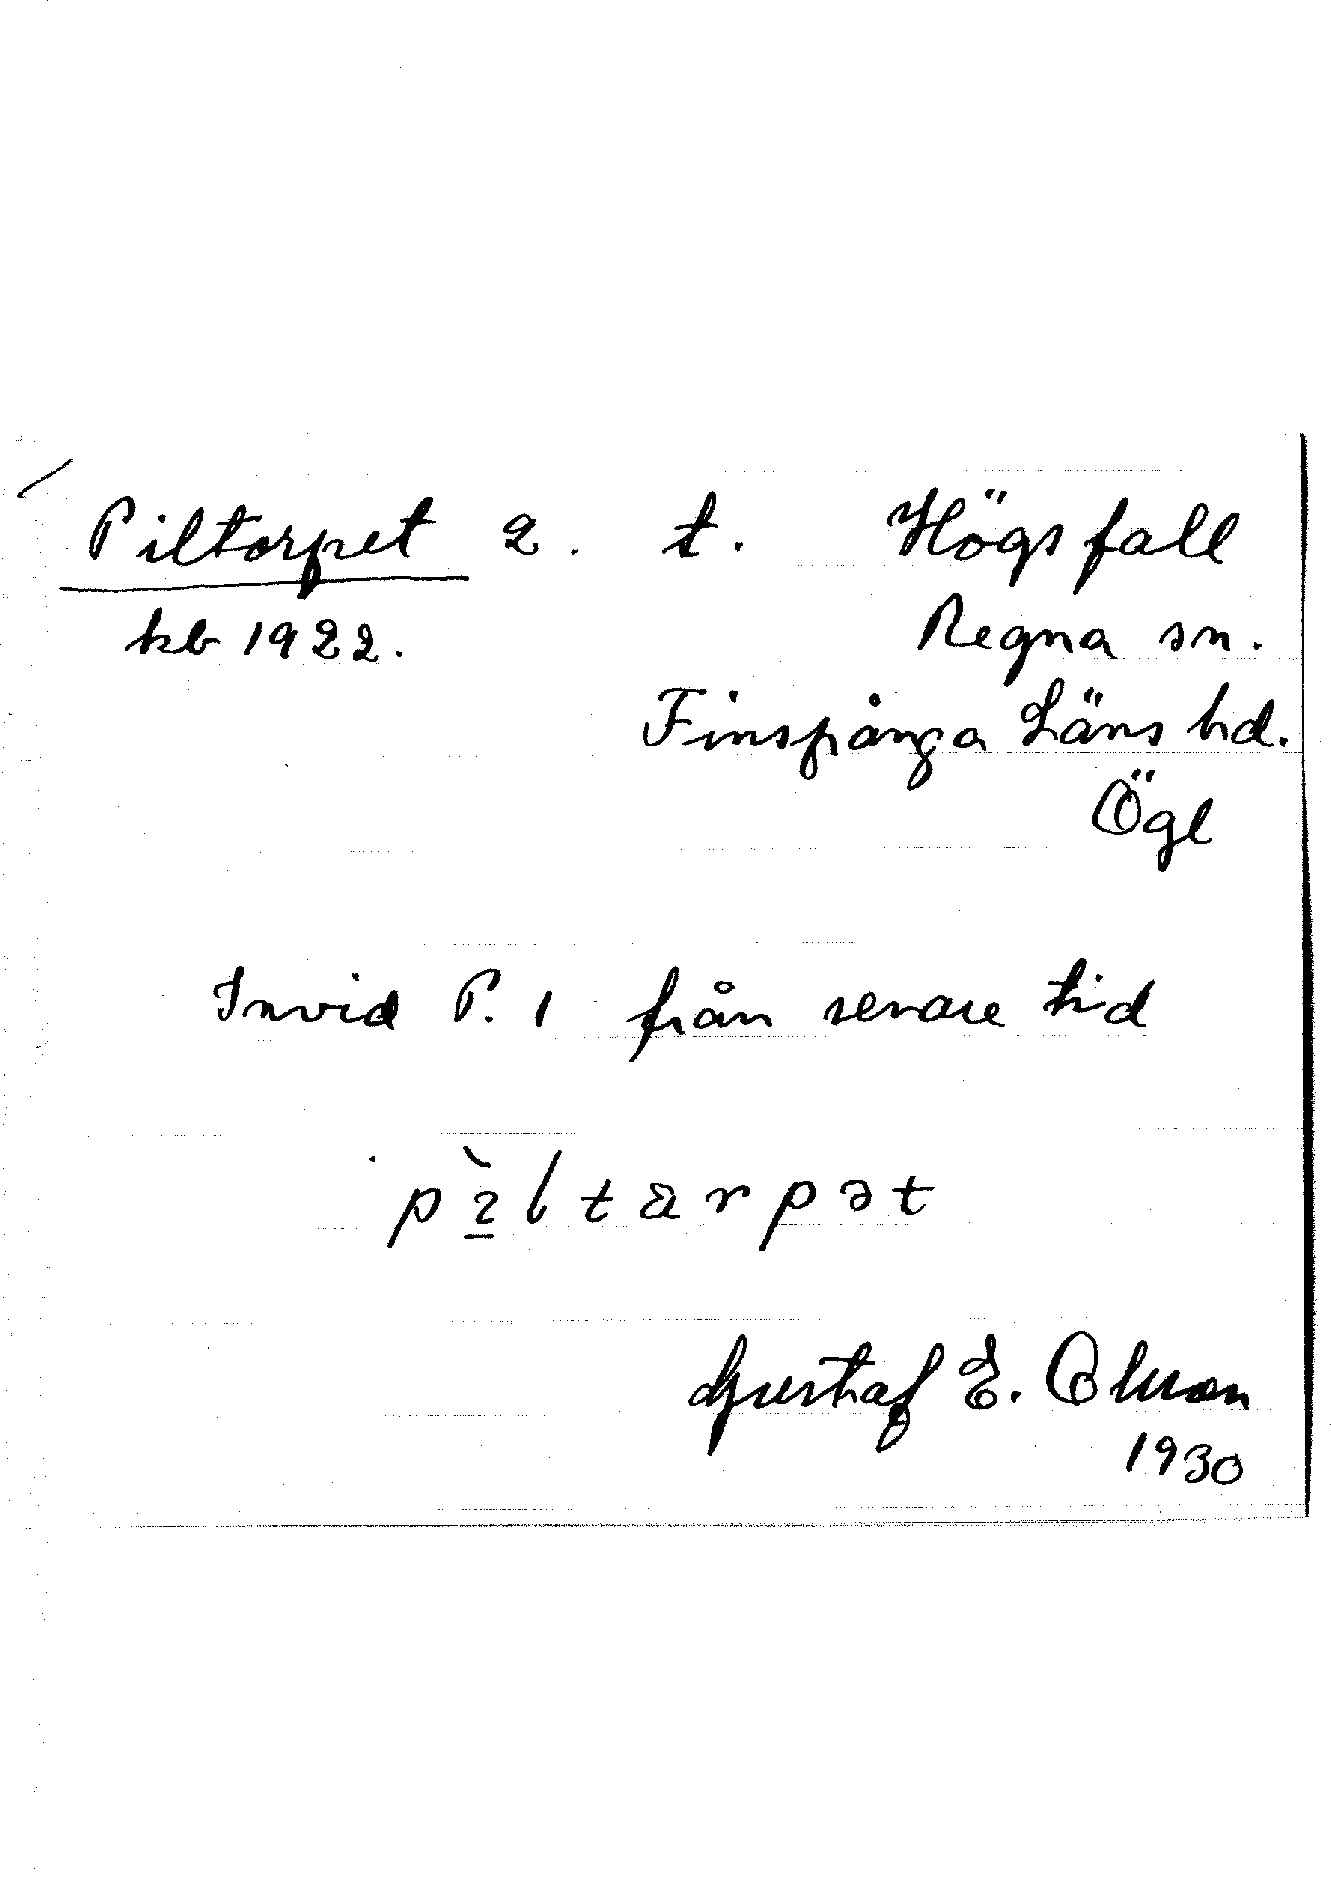 Piltorpet 2. t. Högsfall
kb 1922. Regna sn.
Finspånga Läns hd.
Ögl
Invid P. 1 från senare tid
Gustaf E. Olsson
1930